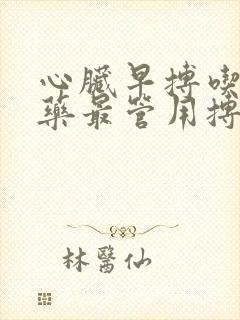 心臟早搏喫
藥最管用搏
林醫仙